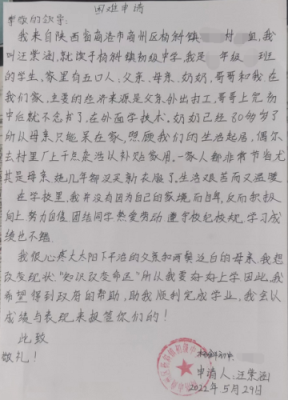 困难申请
尊敬的领导:
我来自陕西省商洛市商州区杨斜镇 村 组,我
叫汪荣涵,就读于杨斜镇初级中学,我是 年级 班
的学生,家里有五口人:父亲、母亲、奶奶、哥哥和我在
我们家,主要的经济来源是父亲外出打工,哥哥上完初
中后就不念书了,在外面学技术,奶奶已经80多岁了
所以母亲只能呆在家,照顾我们的生活起居,偶尔
去村里厂上干点杂活以补贴家用,一家人都非常节俭尤
其是母亲,她几年都没买新衣服了,生活艰苦而又温暖
在学校里,我并没有因为自己的家境而自卑,反而积极
向上,努力自信,团结同学,热爱劳动,遵守校纪校规,学习成
绩也不错。
我很心疼大太阳下干活的父亲和两鬓近白的母亲,我想
改变现状,“知识改变命运”所以我要好好上学,因此,我
希望得到政府的帮助,助我顺利完成学业,我会以
成绩与表现来报答你们的!
此致
敬礼!
杨斜初中
申请人:汪荣涵
2022年5月29日